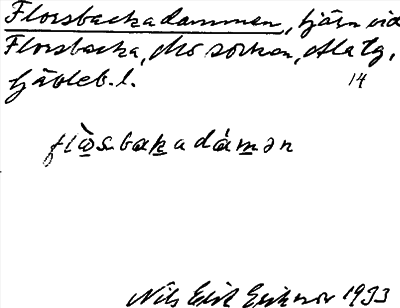 Florsbackadammen, tjärn vid
Florsbacka, Mo socken, Ala tg,
Gävleb. l. 14
flɷ̀sbakadámən
Nils Erik Eriksson 1933